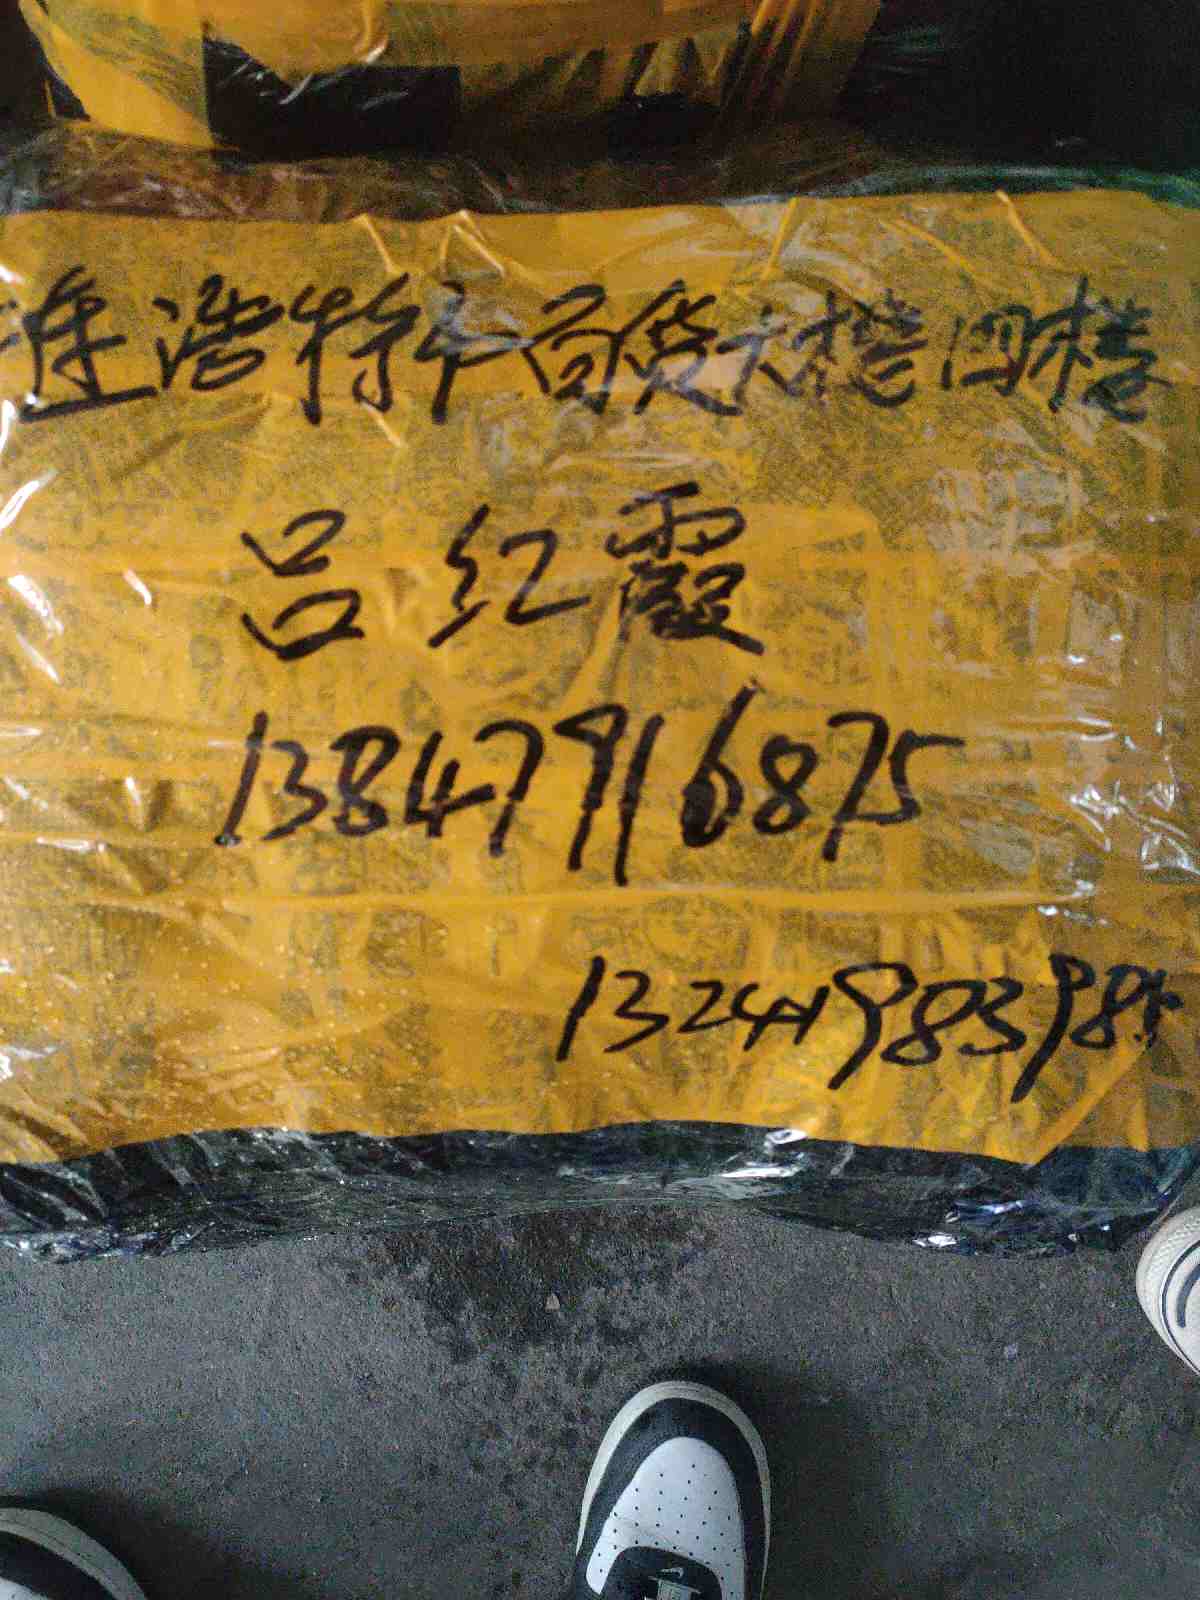 二连浩特千百货大楼四楼
吕红霞
13847916875
13241983985